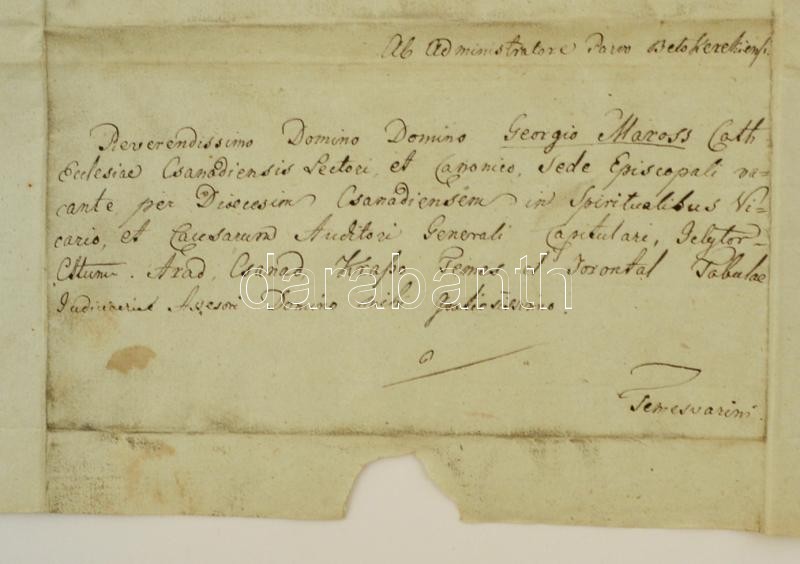 Ab Administratore Paroo Belokerekiensi
Reverendissimo Domino Domino Georgio Maross Cath
Ecclesiae Csanadiensis Lectori, et Canonico, Sede Episcopali va-
cante per Dioecesim Csanadiensem in Spiritualibus Vi-
cario, et Causarum Auditori Generali Capitulari, Inlytor-
Cttuum. Arad, Csanad, Kraso Temes et Torontal Tabulae
Judiciariae Assesori Domino mihi Gratiosissimo.
Temesvarini
darabanth